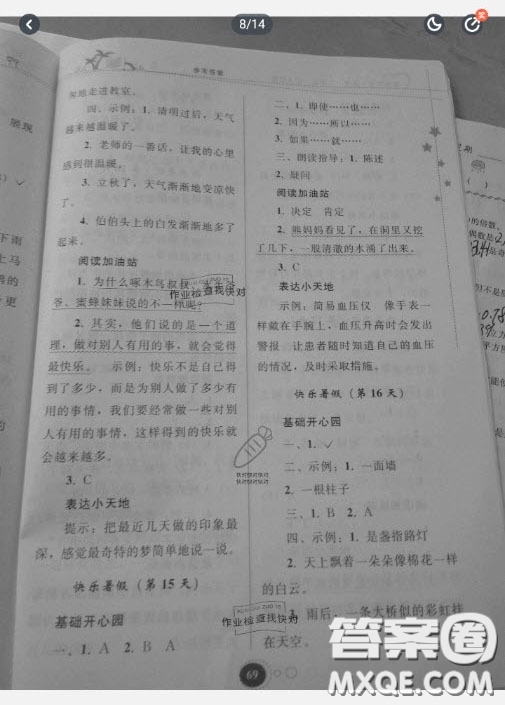 8/14
参考答案
灰地走进教室。
四、示例：1. 清明过后，天气
越来越温暖了。
2. 老师的一番话，让我的心里
感到很温暖。
3. 立秋了，天气渐渐地变凉快
了。
4. 伯伯头上的白发渐渐地多了
起来。
阅读加油站
1. 为什么啄木鸟叔叔、
爷、蜜蜂妹妹说的不一样呢？
2. 其实，他们说的是一个道
理，做对别人有用的事，就会觉得
最快乐。 示例：快乐不是自己得
到了多少，而是为别人做了多少有
用的事情，我们要经常做一些对别
人有用的事情，这样得到的快乐就
会越来越多。
3. C
表达小天地
提示：把最近几天做的印象最
深，感觉最奇特的梦简单地说一说。
快乐暑假（第 15 天）
基础开心园
一、1. A 2. B A
二、1. 即使……也……
2. 因为……所以……
3. 如果……就……
三、朗读指导：1. 陈述
2. 疑问
阅读加油站
1. 决定 肯定
2. 熊妈妈看见了，在洞里又挖
了几下，一股清澈的水涌了出来。
3. C
表达小天地
示例：简易血压仪 像手表一
样戴在手腕上，血压升高时会发出
警报 让患者随时知道自己的血压
的情况，及时采取措施。
快乐暑假（第 16 天）
基础开心园
一、1. ✓
二、示例：1. 一面墙
2. 一根柱子
三、1. B 2. A
四、示例：1. 是盏指路灯
2. 天上飘着一朵朵像棉花一样
的白云。
3. 雨后，一条大桥似的彩虹挂
在天空。
69
作业检查找快对
作业检查找快对
快对快对快对
快对快对快对
展现
下雨
上马
的
更
的倍数、
偶数是
0.78
答案圈
MXQE.COM